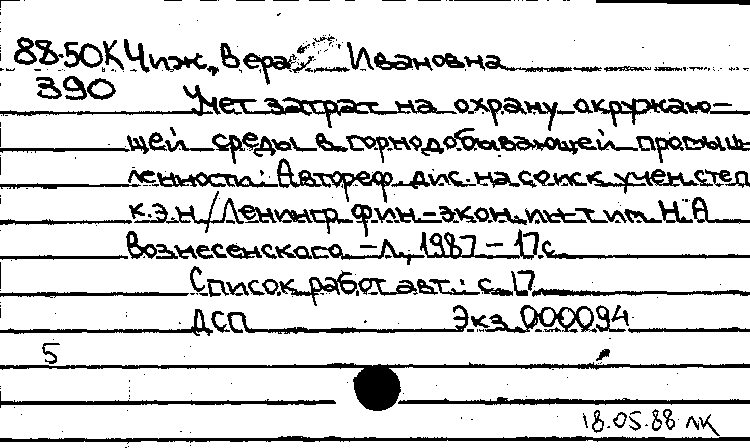 88.50К Чиж, Вера Ивановна
390
Учет затрат на охрану окружаю-
щей среды в горнодобывающей промыш-
ленности: Автореф. дис. на соиск учен. степ
к.э.н./Ленингр. фин.-экон. ин-т им. Н.А
Вознесенского. -Л., 1987 - 17с.
Список работ авт.: с. 17
ДСП Экз. 000094
5
18.05.88 ЛК